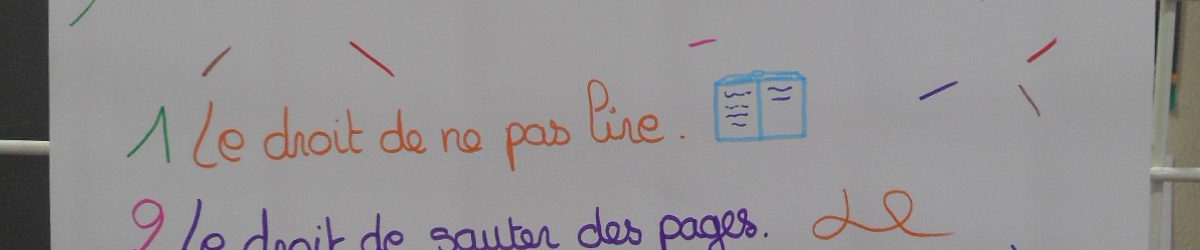 1 Le droit de ne pas lire.
2 le droit de sauter des pages. Le